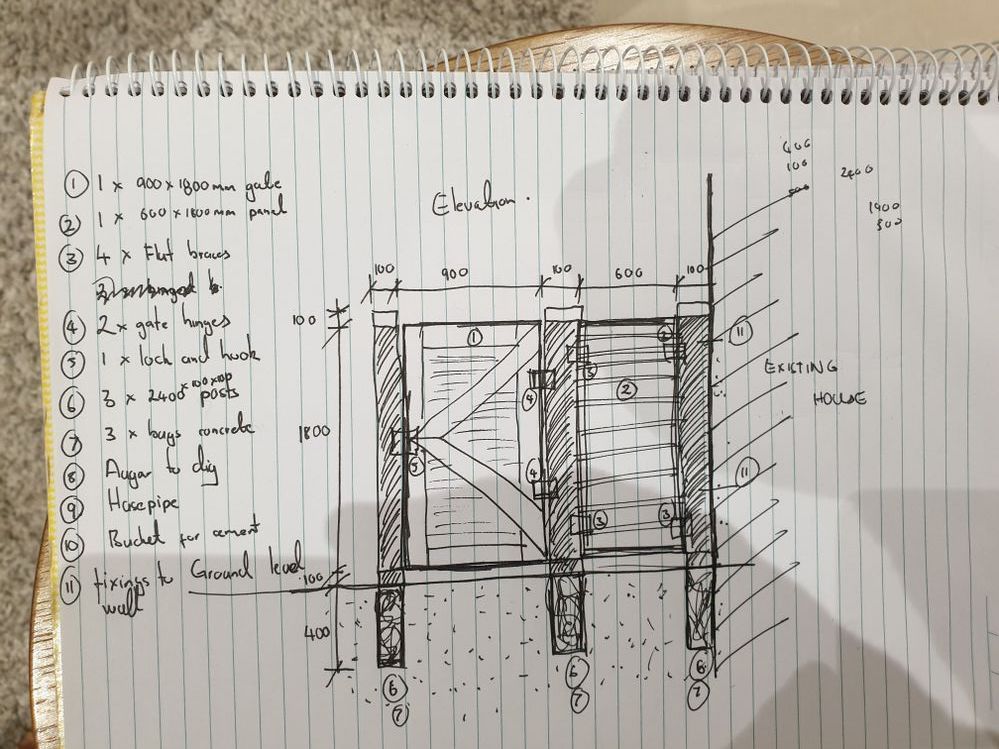 ① 1 x 900 x 1800mm gate
② 1 x 600 x 1800mm panel
③ 4 x Flat braces
④ 2 x gate hinges
⑤ 1 x lock and hook
⑥ 3 x 2400 x100x100 posts
⑦ 3 x bags concrete
⑧ Augar to dig
⑨ Hosepipe
⑩ Bucket for cement
⑪ fixings to wall
Elevation.
400
100
500
2400
1900
500
100
900
100
600
100
100
1800
100
400
Ground level
①
②
③
③
③
③
④
④
⑤
⑥
⑦
⑥
⑦
⑥
⑦
⑪
⑪
EXISTING
HOUSE